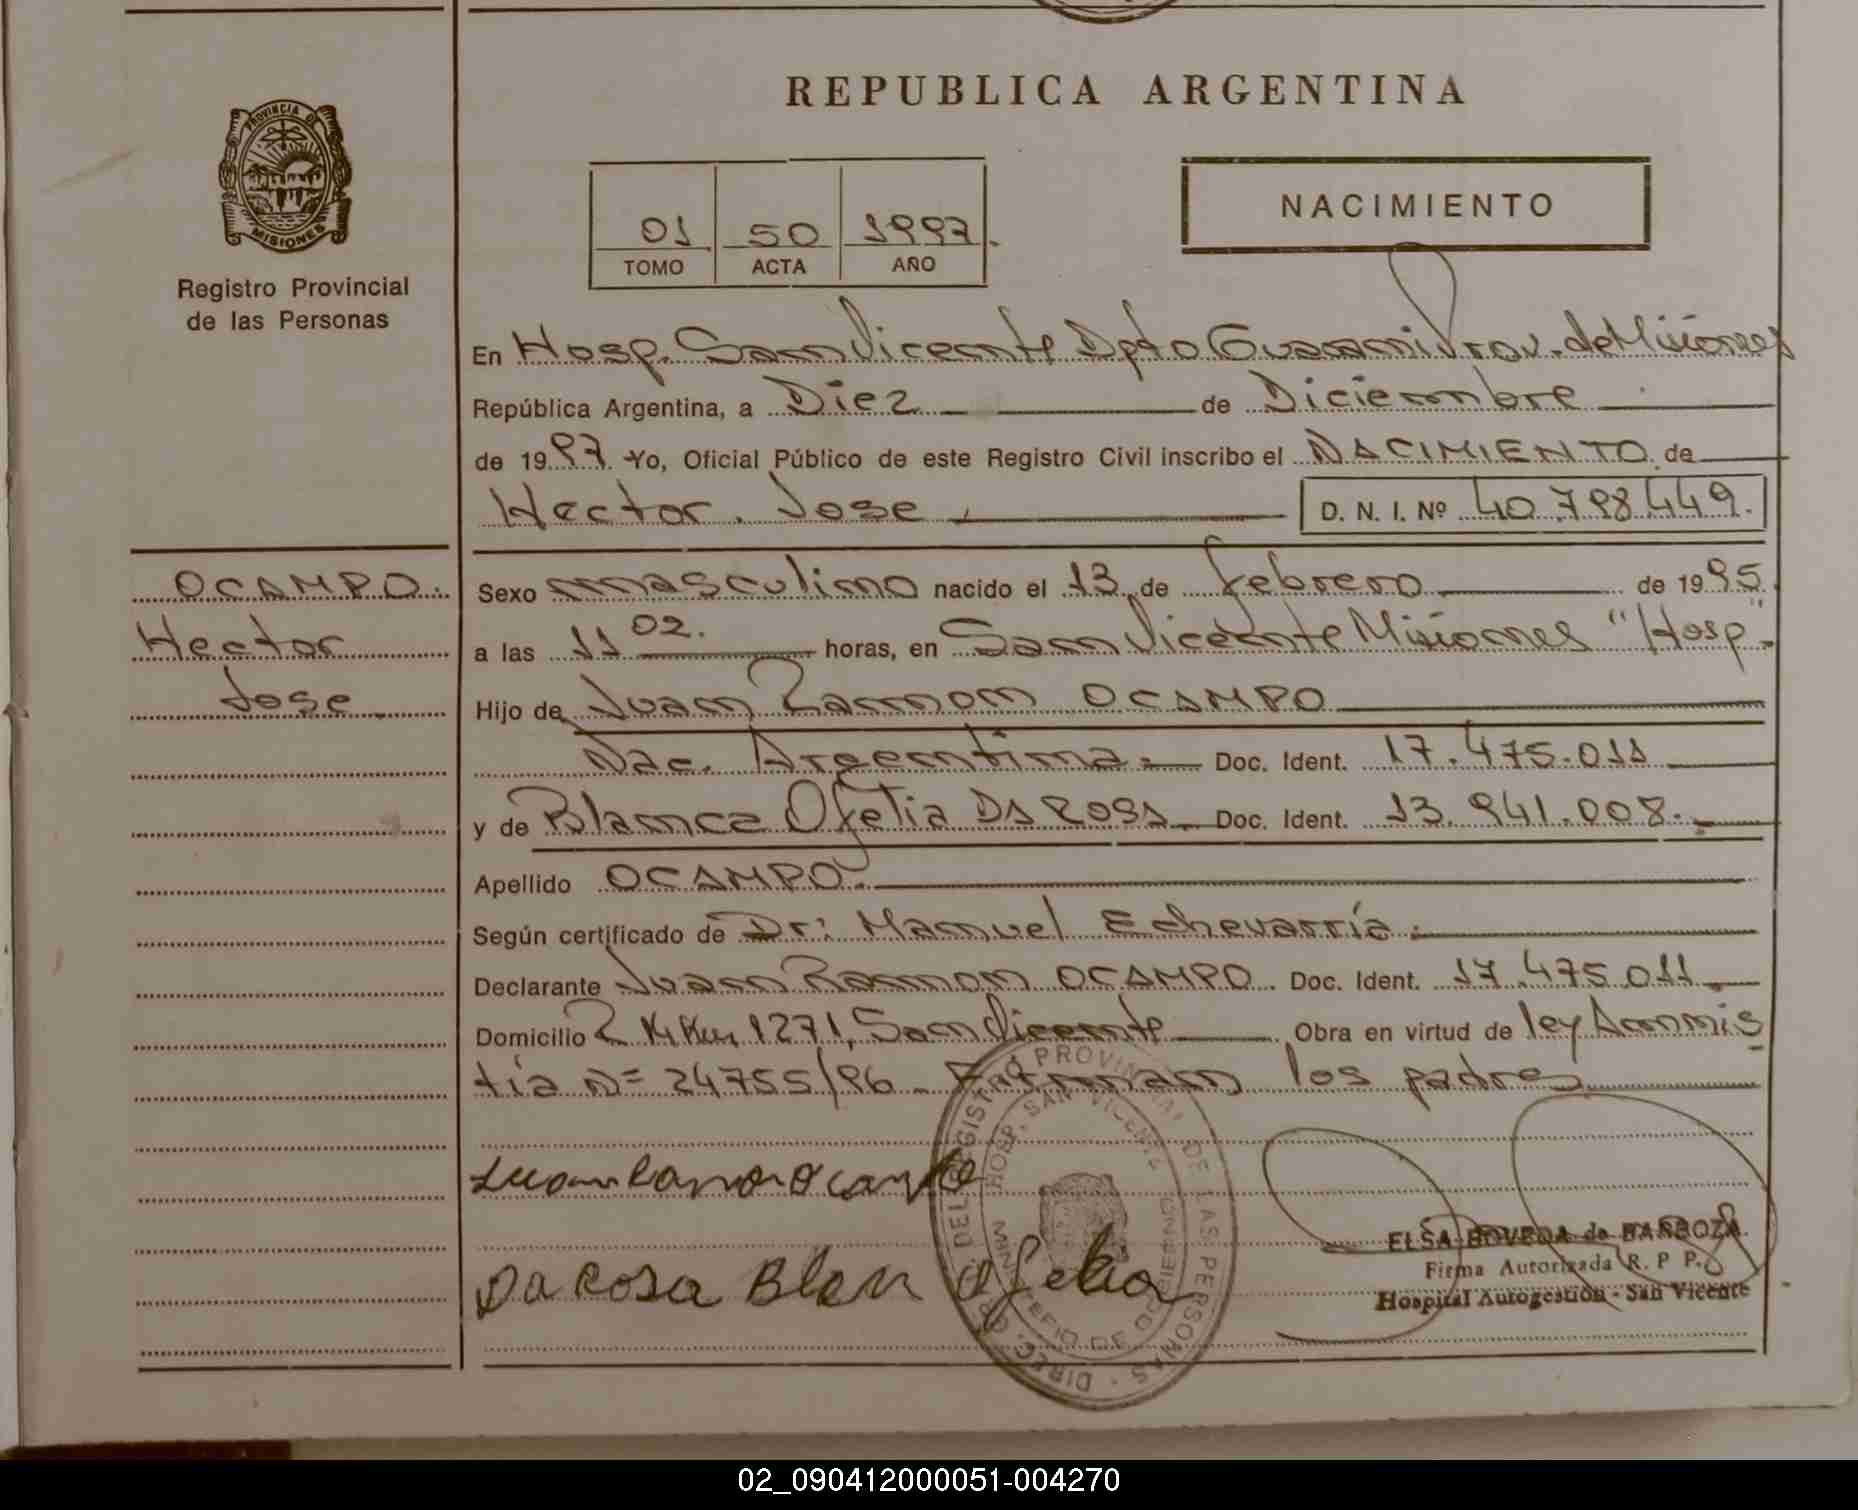 REPUBLICA ARGENTINA
PROVINCIA DE
MISIONES
Registro Provincial
de las Personas
NACIMIENTO
01 50 1997
TOMO ACTA AÑO
En Hosp. San Vicente Dpto Guarani Prov. de Misiones
República Argentina, a Diez de Diciembre
de 1997. Yo, Oficial Público de este Registro Civil inscribo el NACIMIENTO de
Hector Jose D. N. I. Nº 40.798.449.
OCAMPO.
Hector
Jose
Sexo masculino nacido el 13 de febrero de 1995.
a las 11 02. horas, en San Vicente Misiones "Hosp".
Hijo de Juan Ramon OCAMPO
Nac. Argentina. Doc. Ident. 17.475.011
y de Blanca Ofelia DA ROSA Doc. Ident. 13.941.008.
Apellido OCAMPO.
Según certificado de Dr: Manuel Echevarría.
Declarante Juan Ramon OCAMPO. Doc. Ident. 17.475.011.
Domicilio 1271, San Vicente Obra en virtud de ley Amnis
tía Nº 24755/96 - Firman los padres
Juan Ramon Ocampo
Da Rosa Blan Ofelia
DIREC. GRAL. DEL REGISTRO PROVINCIAL DE LAS PERSONAS
HOSP. SAN VICENTE
MINISTERIO DE GOBIERNO
ELSA BOVEDA de BARBOZA
Firma Autorizada R. P P.
Hospital Autogestión - San Vicente
02_090412000051-004270